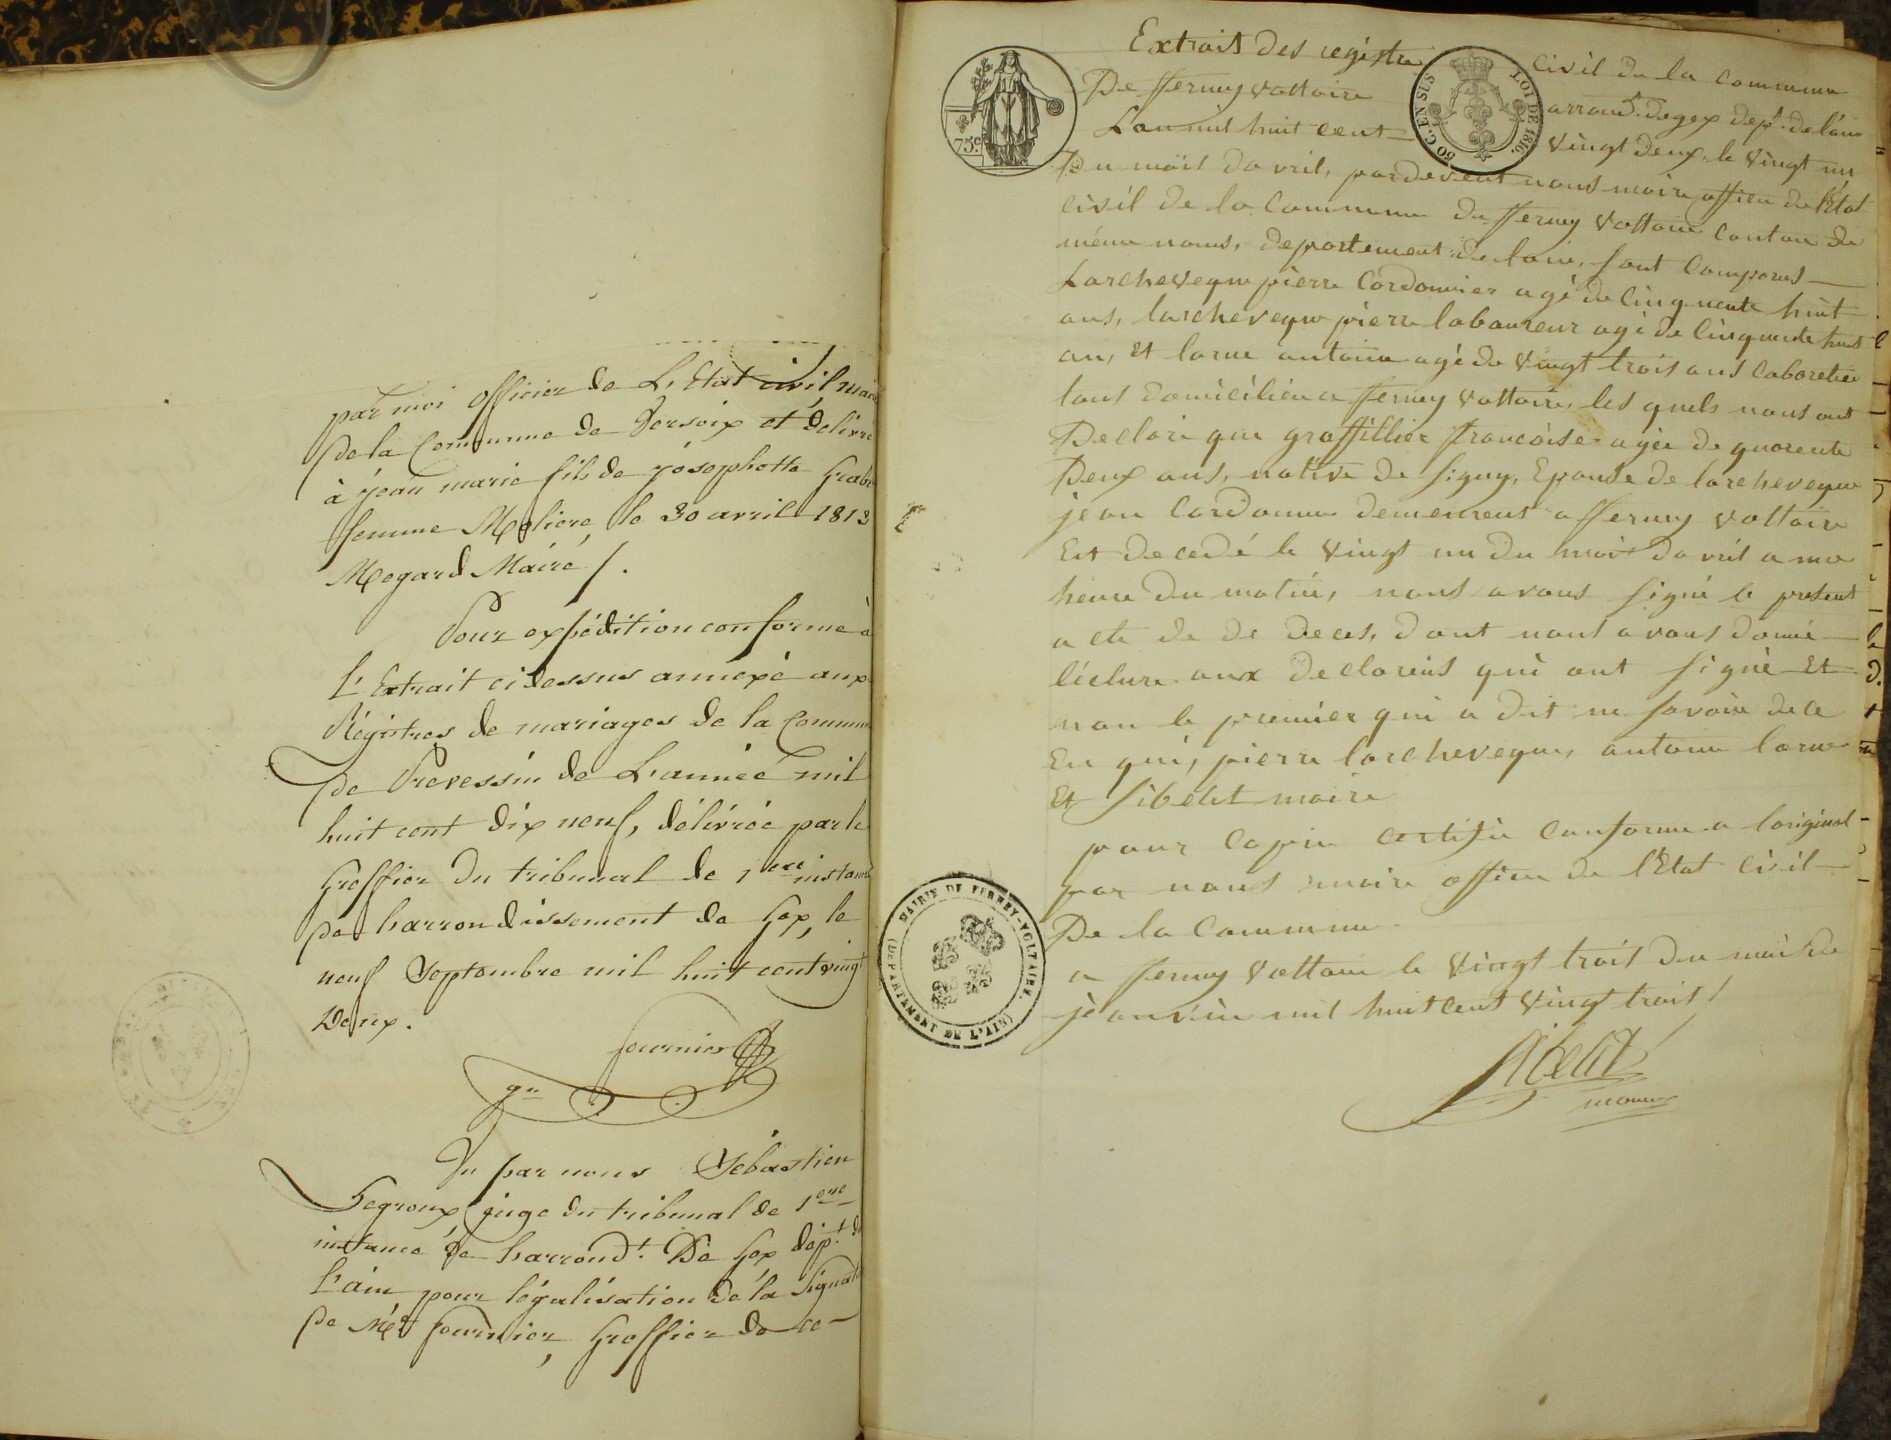 par moi officier de L'Etat civil, mai
de la Commune de Versoix et délivré
à jean marie fils de josephotte Grab
femme Moliere, le 30 avril 1813
Megard Maire /.
Pour expédition conforme à
L'Extrait cidessus annexé aux
Régistres de mariages de la Commun
de Prevessin de L'année mil
huit cent dix neuf, délivrée par le
Greffier du tribunal de 1ere instance
de l'arrondissement de Gex, le
neuf Septembre mil huit cent vingt
Deux.
fournier
gr
Vu par nous Sébastien
Degroux, juge du tribunal de 1ere
instance de l'arrondt. De Gex dépt. de
L'ain pour légalisation de la signat
de Mr fournier, Greffier de ce
Extrait des registre civil de la commune
De fferney voltaire arrond. de gex dept. de l'ain
L'an mil huit cent vingt deux, le vingt un
Du mois d'avril, pardevent nous maire officie de l'Etat
civil de la commune de fferney voltaire canton de
même noms, departement de l'ain, sont comparus
Larcheveque pierre Cordonnier agé de cinquente huit
ans, larcheveque pierre laboureur agé de cinquente huit
an, et larue antoine agé de vingt trois ans cabaretier
tous domicilié a fferney voltaire, les quels nous ont
Declaré que graffillier francoise agée de quarente
Deux ans, native de signy, Epouse de larcheveque
jean Cordonnie demeurent a fferney voltaire
Est decedé le vingt un du mois d'avril a une
heure du matin, nous avons signé le present
acte de de deces, dont nous avons donné
lécture aux declarens qui ont signé Et
non le premier qui a dit ne savoir de ce
En qui, pierre larcheveque, antoine larue
Et sibelet maire
pour copie certifié conforme a l'original
par nous maire officie de l'Etat civil
De la commune
a fferney voltaire le vingt trois du mois de
janvier mil huit cent vingt trois /
Sibelet
maire
75 c.
50 C. EN SUS
LOI DE 1816.
MAIRIE DE FERNEY-VOLTAIRE.
(DEPARTEMENT DE L'AIN)